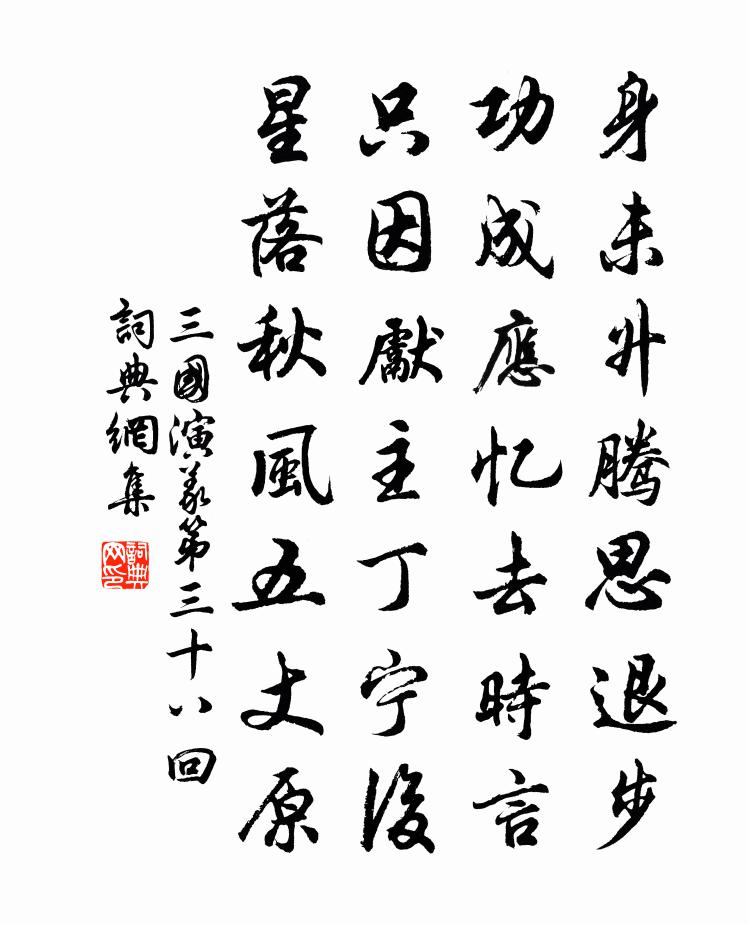 身未升騰思退步
功成應忆去時言
只因獻主丁宁後
星落秋風五丈原
三國演義第三十八回
詞典網集
詞典网印